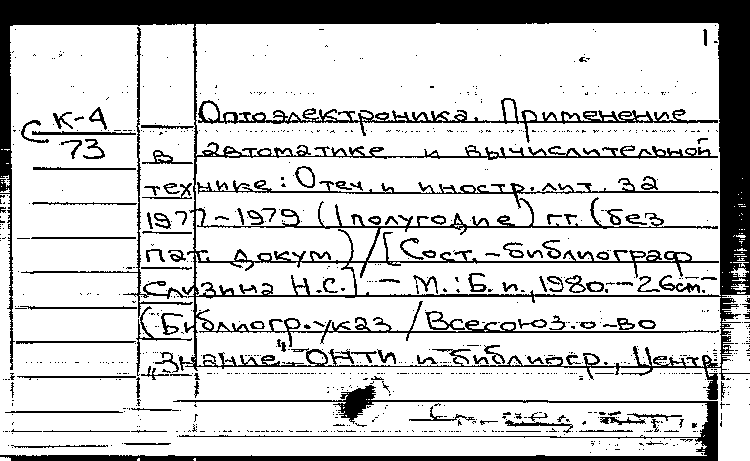 1
С К-4
73
Оптоэлектроника. Применение
в автоматике и вычислительной
технике: Отеч. и иностр. лит. за
1977-1979 (I полугодие) г.г. (без
пат. докум.) / [Сост. - библиограф
Слизина Н.С.]. - М.: Б. и., 1980. - 26 ст. -
(Библиогр. указ / Всесоюз. о-во
„Знание", ОНТИ и библиогр., Центр
См. след. карт.